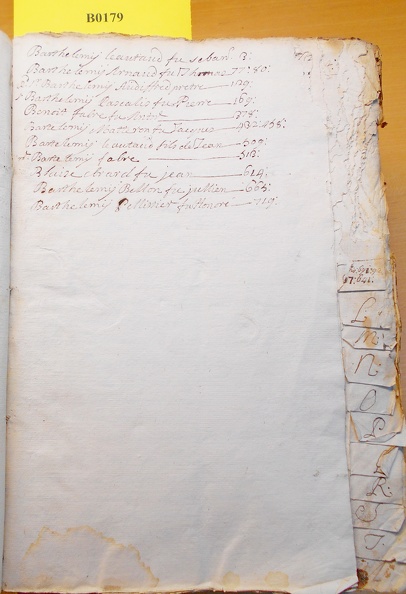 B0179
Barthelemij leautaud fu seban 3:
Barthelemij Arnaud fu Thomas 77: 80:
Barthelemij Audiffred pretre 129
Barthelemij Pascalis fu Pierre 169:
Benoit fabre fu 378:
Bartelemij Matheron fu Jacques 432: 455:
Barthelemij leautaud fils de Jean 509:
Bartelemij fabre 518:
Blaise obrard fu jean 614:
Barthelemij Bellon fu jullien 665:
Barthelemij Pellissier fu Honoré 719:
L:
M:
N:
O
R:
S
T: